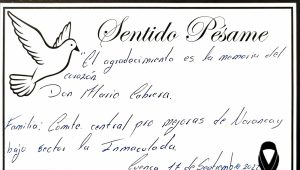 Sentido Pésame
"El agradecimiento es la memoria del
corazón
Don Mario Cabrera.
Familia: Comite central pro mejoras de Narancay
bajo sector la Inmaculada
Cuenca 17 de Septiembre